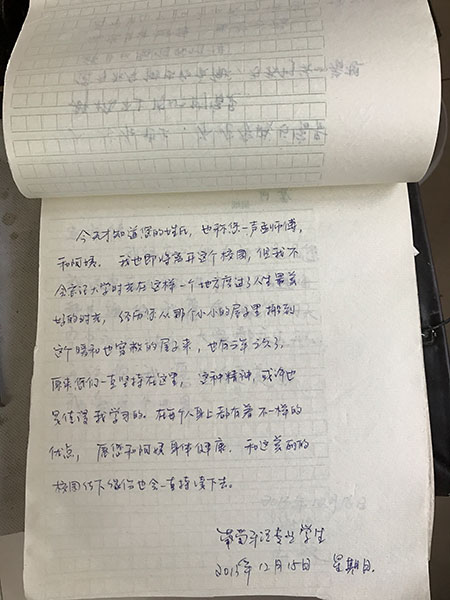 今天才知道您的姓氏，也称您一声师傅，
和阿姨。我也即将离开这个校园，但我不
会忘记大学时光在这样一个地方度过了人生最美
好的时光，经历您从那个小小的屋子里搬到
这个暖和也宽敞的屋子来，也有年多了，
原来你们一直坚持在这里，这种精神，或许也
是值得我学习的。在每个人身上都有着不一样的
优点，愿您和阿姨身体健康。和这美丽的
校园结下缘份也会一直持续下去。
葡萄牙语专业学生
2013年12月15日 星期日.